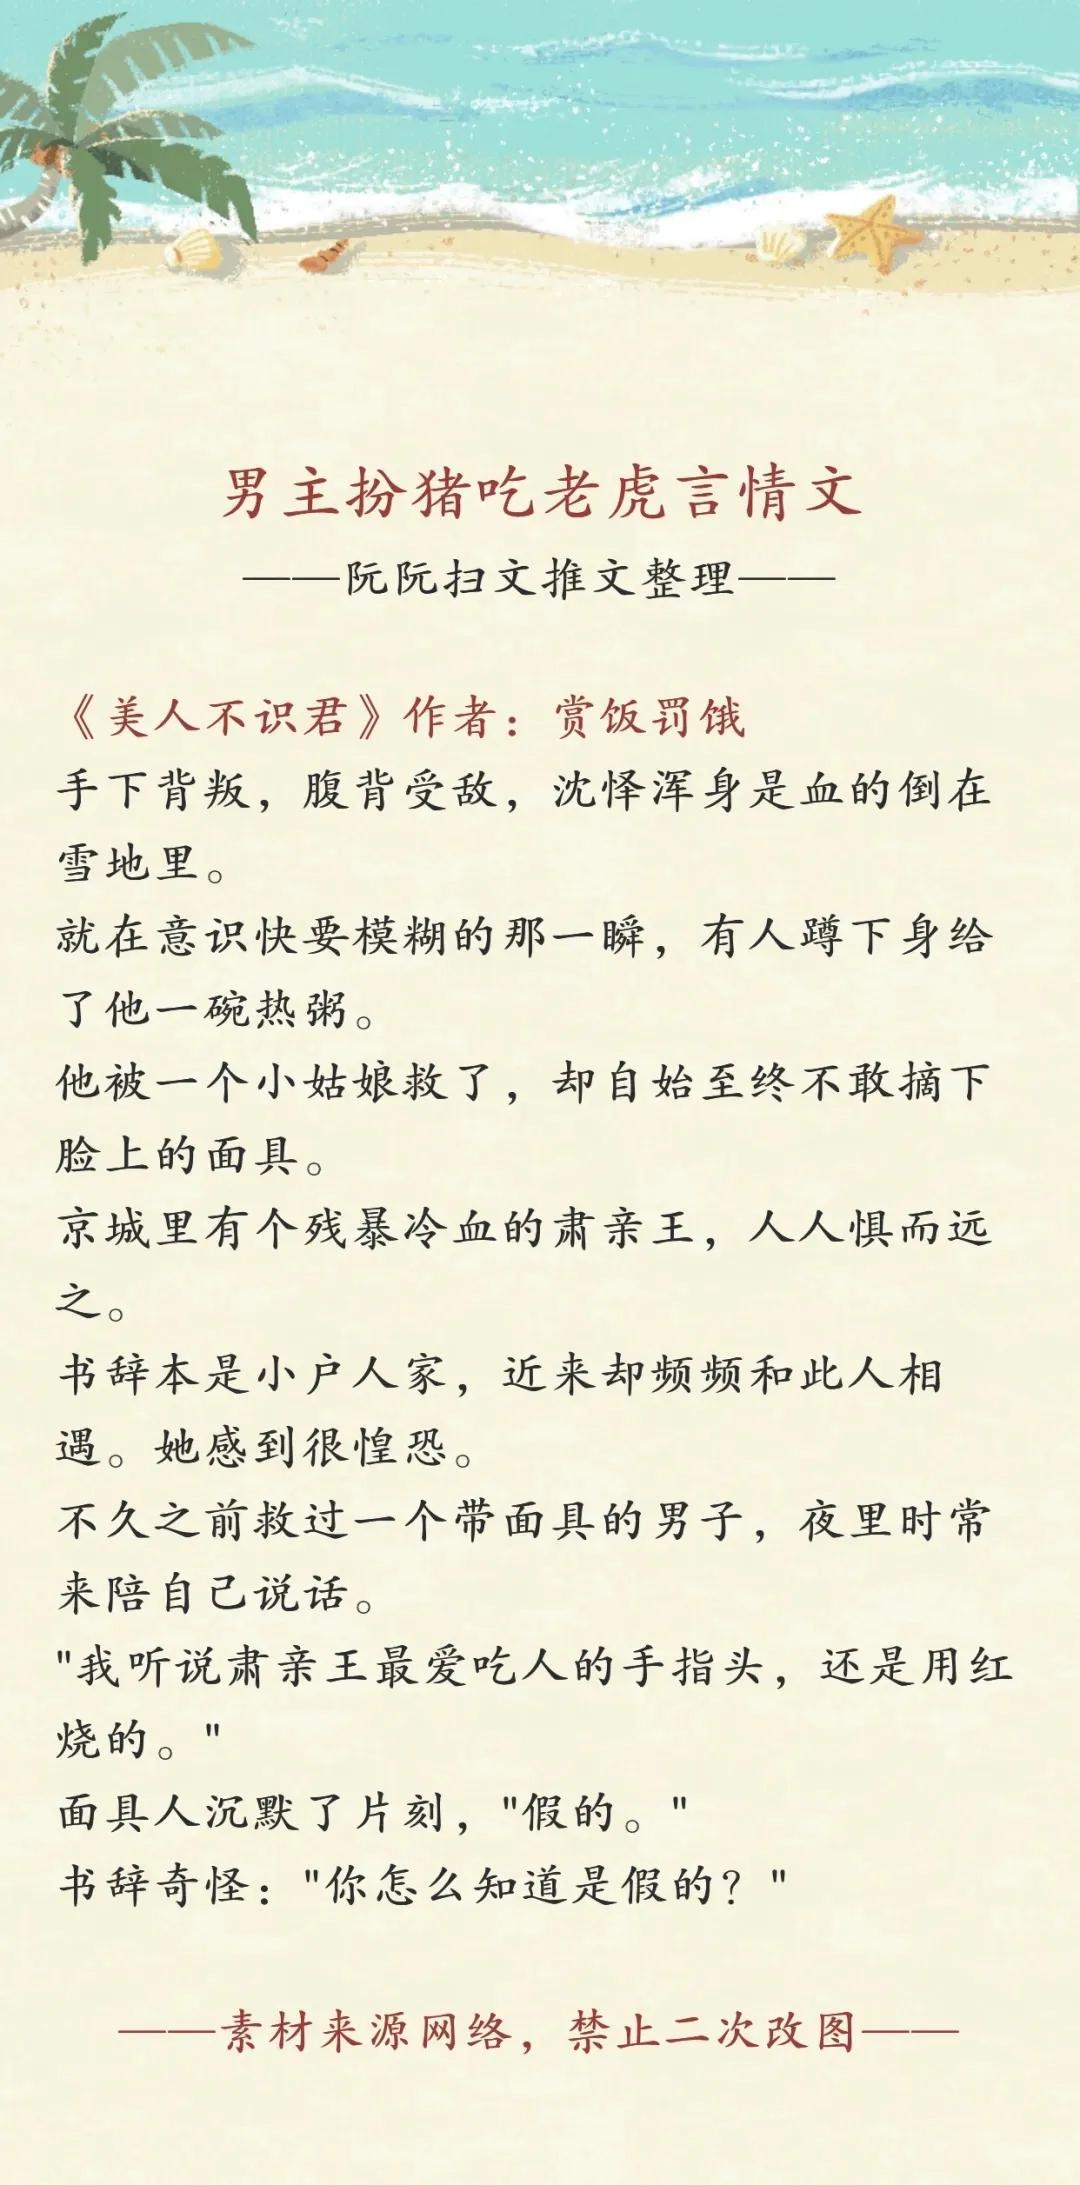 男主扮猪吃老虎言情文
——阮阮扫文推文整理——
《美人不识君》作者：赏饭罚饿
手下背叛，腹背受敌，沈怿浑身是血的倒在
雪地里。
就在意识快要模糊的那一瞬，有人蹲下身给
了他一碗热粥。
他被一个小姑娘救了，却自始至终不敢摘下
脸上的面具。
京城里有个残暴冷血的肃亲王，人人惧而远
之。
书辞本是小户人家，近来却频频和此人相
遇。她感到很惶恐。
不久之前救过一个带面具的男子，夜里时常
来陪自己说话。
"我听说肃亲王最爱吃人的手指头，还是用红
烧的。"
面具人沉默了片刻，"假的。"
书辞奇怪："你怎么知道是假的？"
——素材来源网络，禁止二次改图——